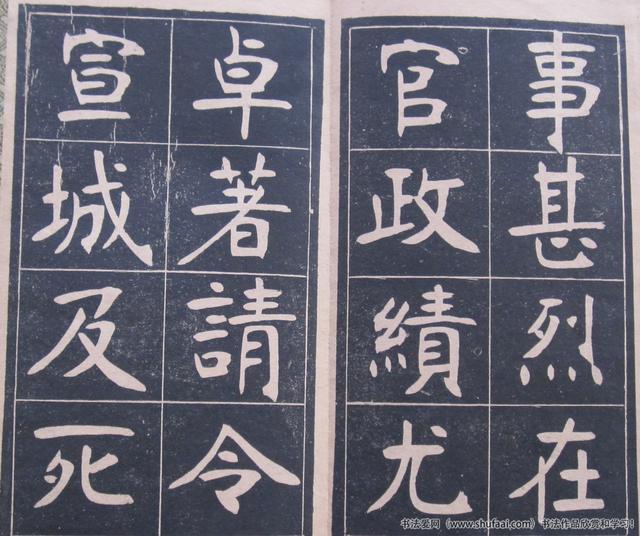 事甚烈在
官政績尤
卓著請令
宣城及死
书法爱网（www.shufaai.com）书法作品欣赏和学习！